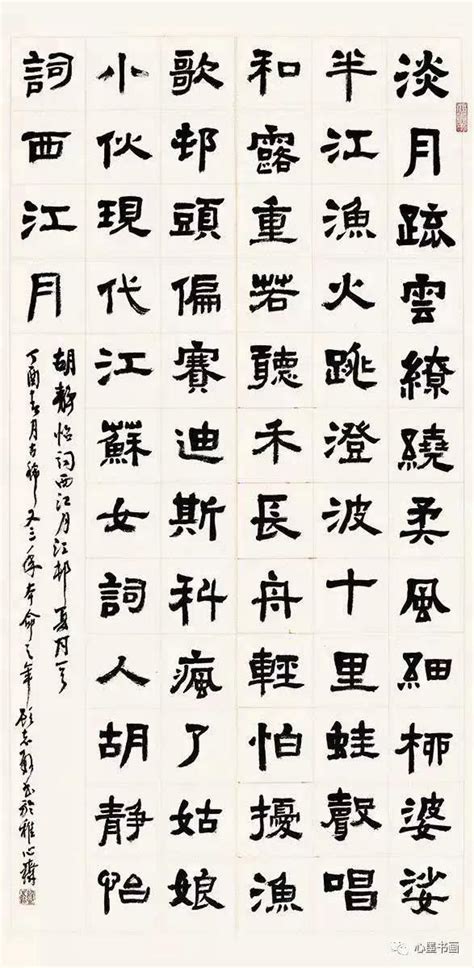 淡月疏雲繚繞柔風細柳婆娑
半江漁火跳澄波十里蛙聲唱
和露重若聽禾長舟輕怕擾漁
歌邨頭偏賽迪斯科瘋了姑娘
小伙現代江蘇女詞人胡靜怡
詞西江月
胡靜怡詞西江月江邨夏月
丁酉春月古稀又三係本命之年顧志新書於心齋
心墨书画